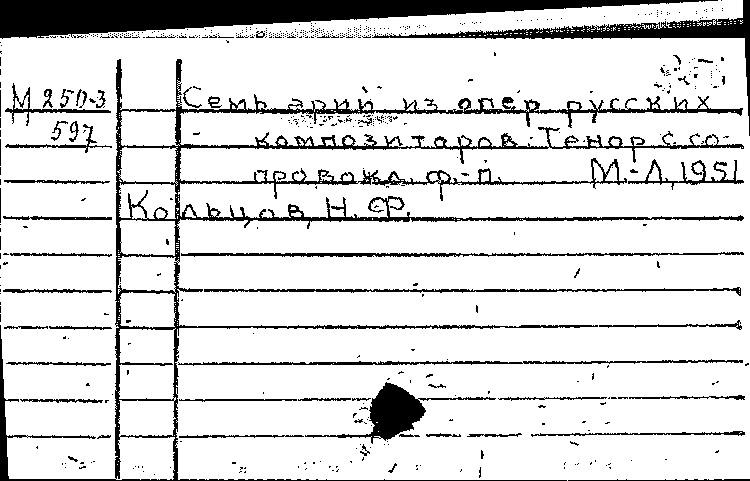 М 250-3 Семь арий из опер русских
597 композиторов. Тенор с со-
провожд. ф.-п. М.-Л., 1951
Кольцов, Н. Ф.